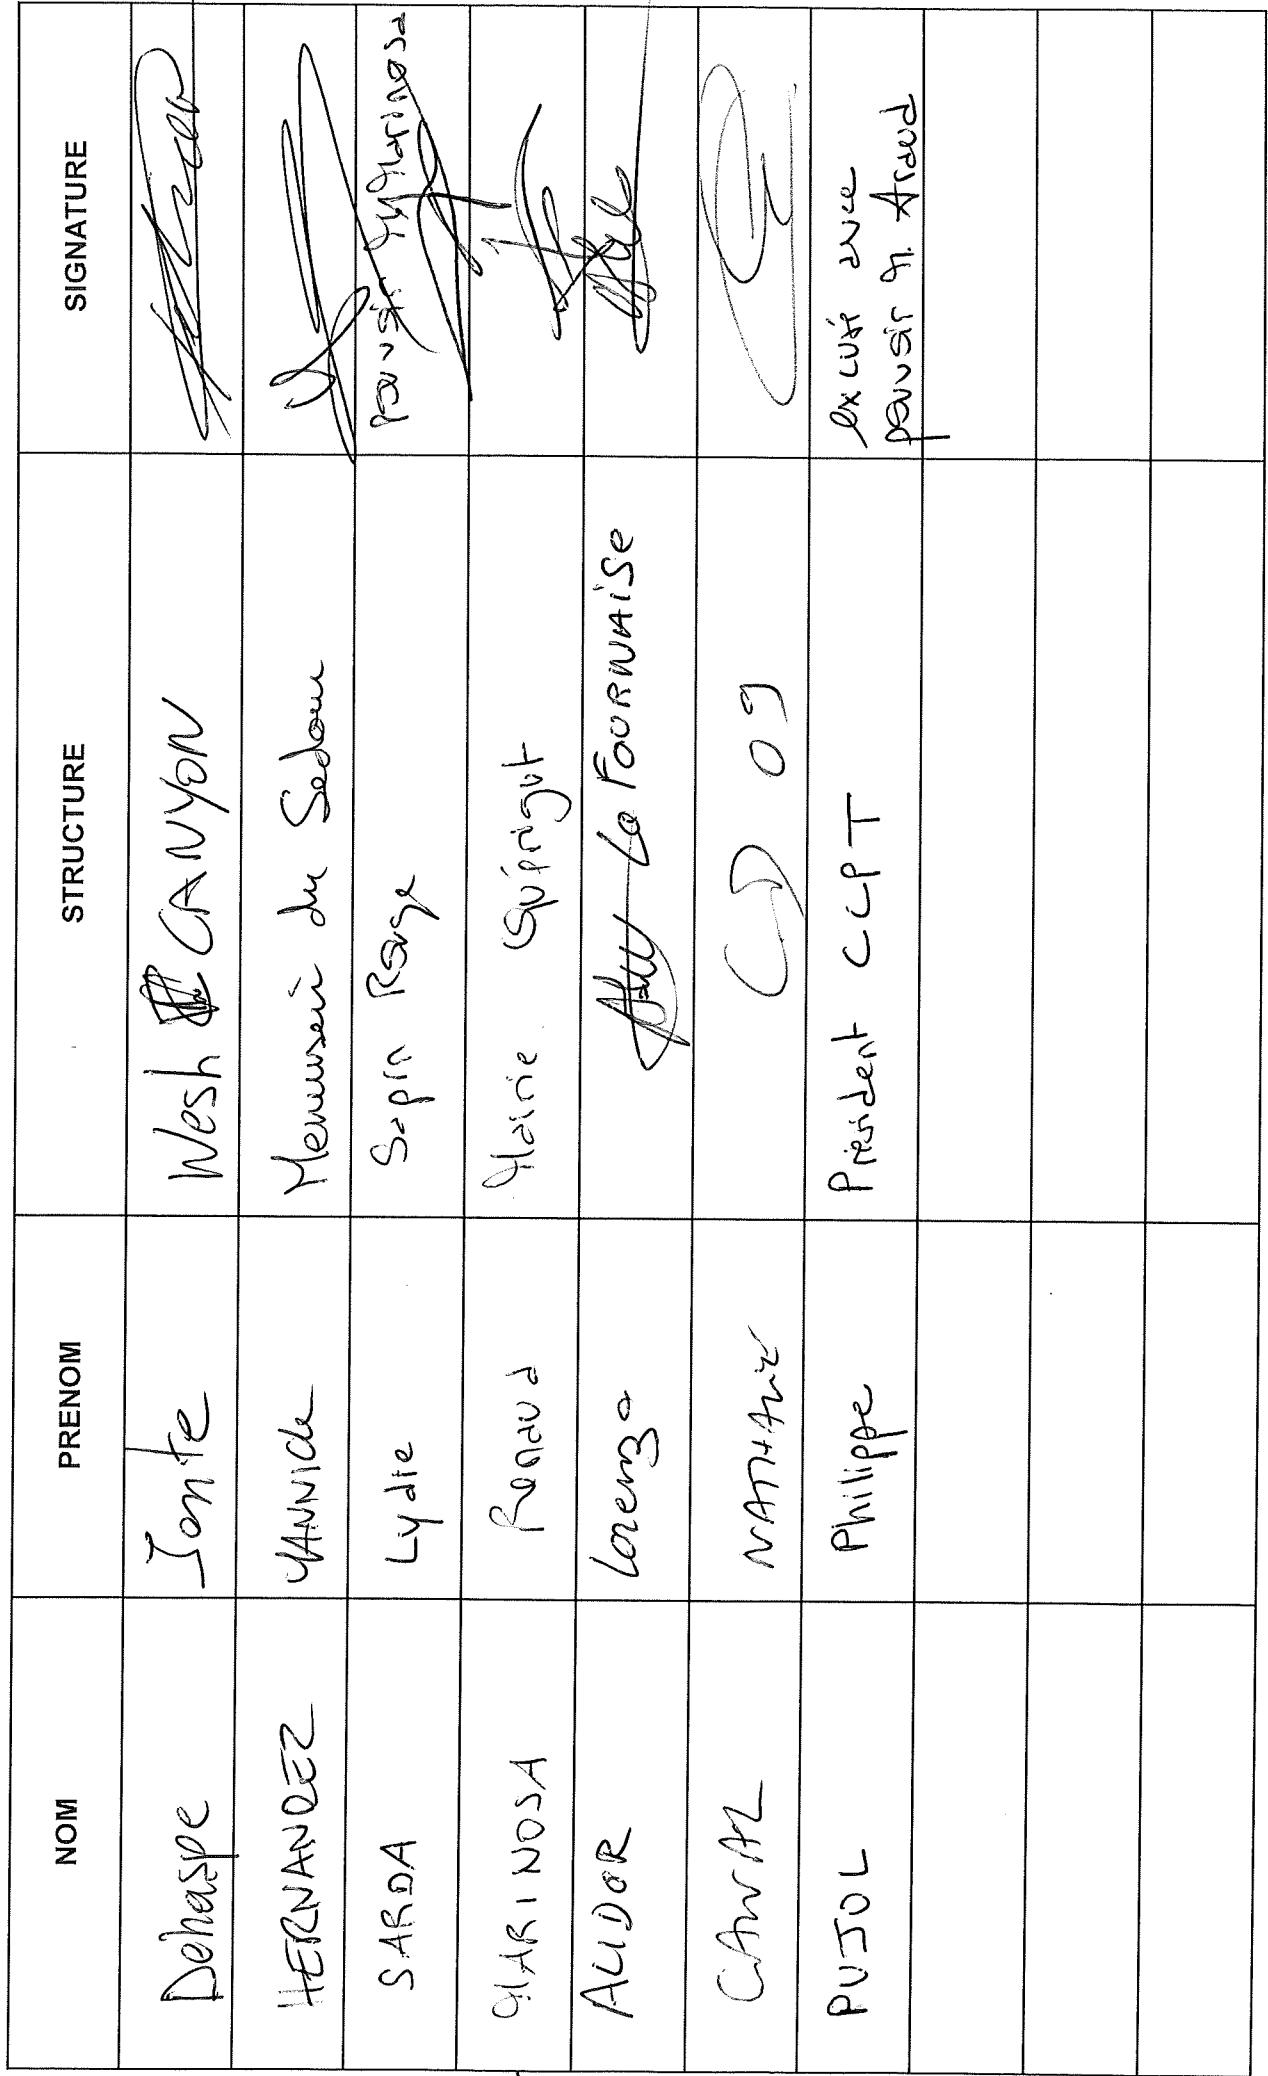 NOM PRENOM STRUCTURE SIGNATURE
Dehaspe Wesh CANYON
HERNANDEZ YANNICK Menuiserie du Sedour
SARDA Lydie Sapin Rouge pouvoir M Marinosa
MARINOSA Renaud Mairie
ALIDOR Lorenzo La FOURNAISE
CANAL NATHALIE CD 09
PUJOL Philippe Président CCPT excusé avec
pouvoir M. Araud